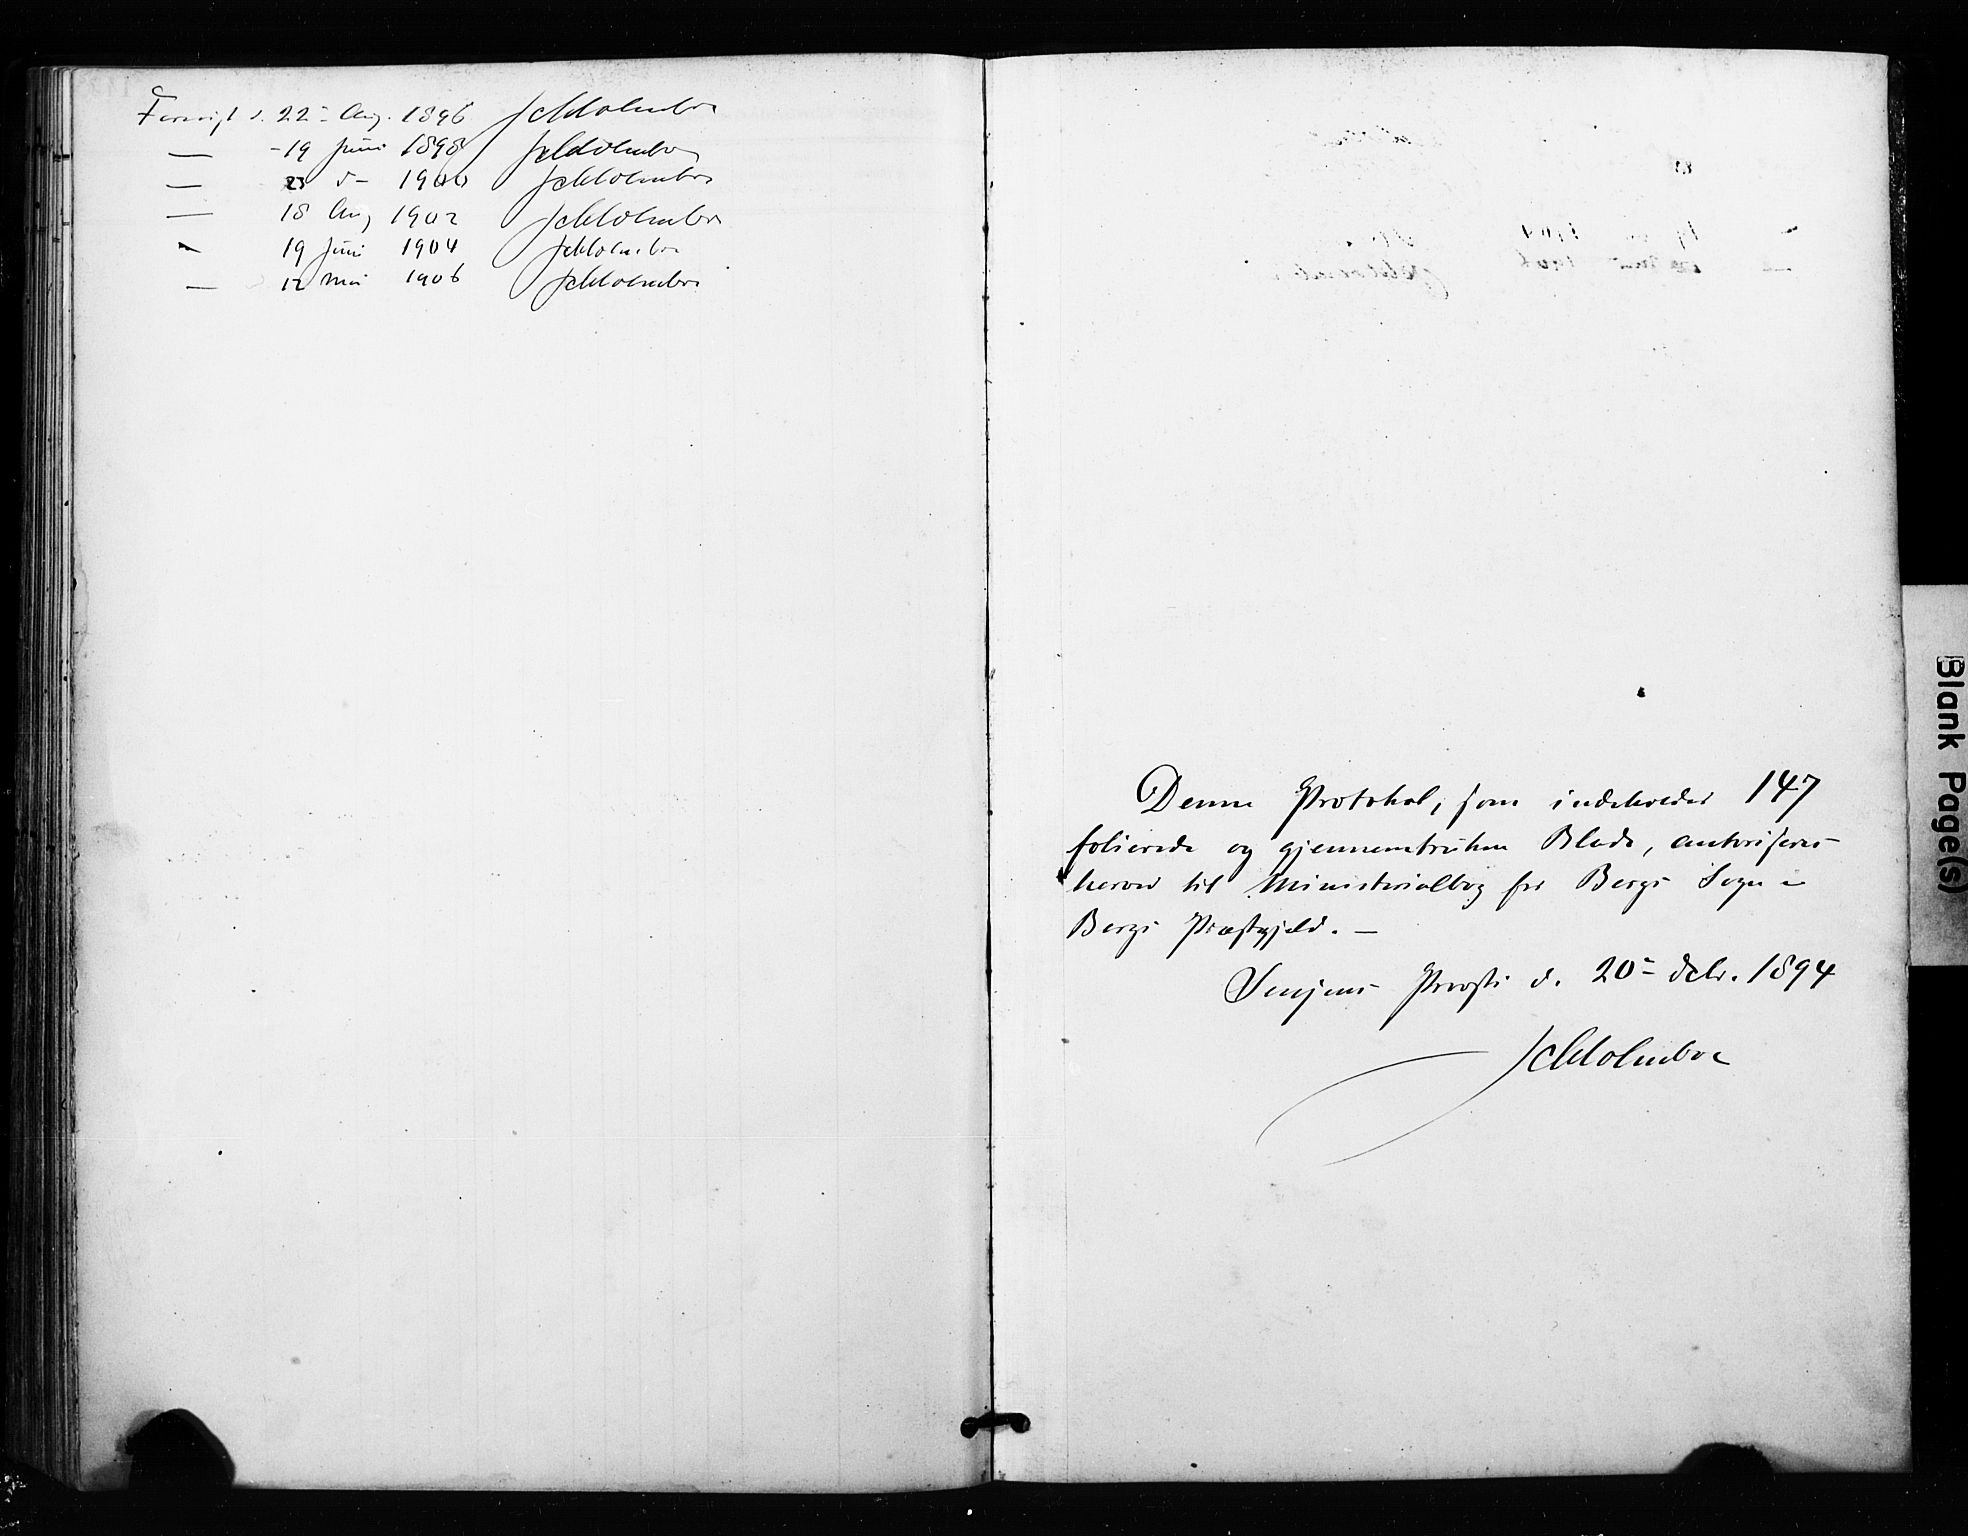 Forevist d. 22- Aug. 1896 JCHolmboe
— - 19 Juni 1898 JCHolmboe
— 23 d- 1900 JCHolmboe
— 18 Aug 1902 JCHolmboe
— 19 Juni 1904 JCHolmboe
— 12 Mai 1906 JCHolmboe
Denne Protokol, som indeholder 147
folierede og gjennemtrukne Blade, autoriseres
herved til Ministerialbog for Bergs Sogn i
Bergs Præstegjæld. —
Senjens Provsti d. 20- Debr. 1894
JCHolmboe
Blank Page(s)